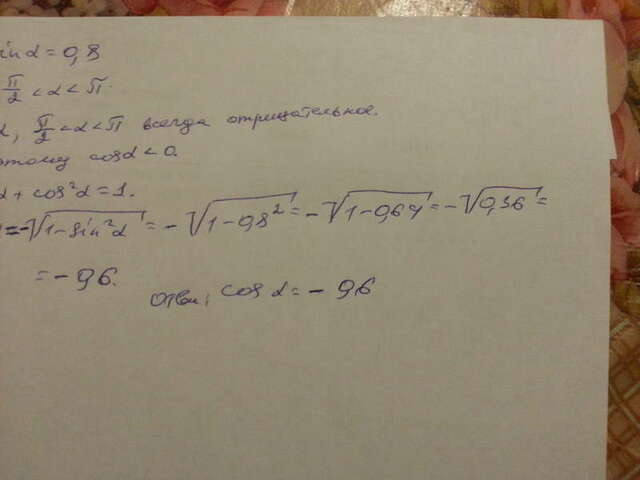 sin α = 0,8
π/2 < α < π
α, π/2 < α < π всегда отрицательное.
этому cos α < 0.
α + cos²α = 1.
= -√(1-sin²α) = -√(1-0,8²) = -√(1-0,64) = -√(0,36) =
= -0,6.
Ответ: cos α = -0,6